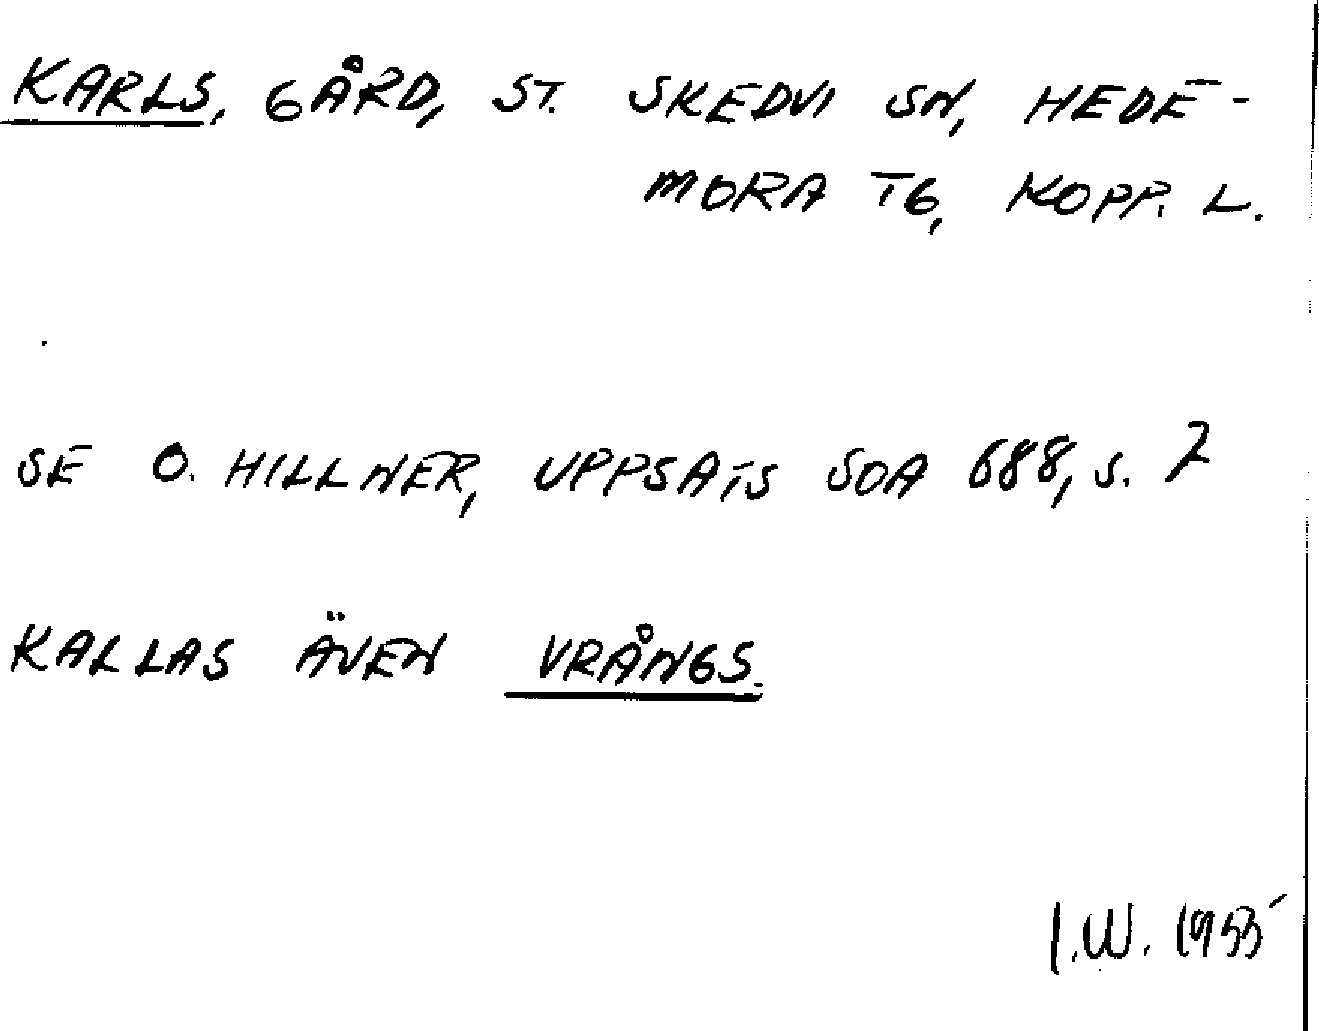 KARLS, GÅRD, ST. SKEDVI SN, HEDE-
MORA TG, KOPP. L.
SE O. HILLNER, UPPSATS SOA 688, S. 7
KALLAS ÄVEN VRÅNGS.
I.W. 1955